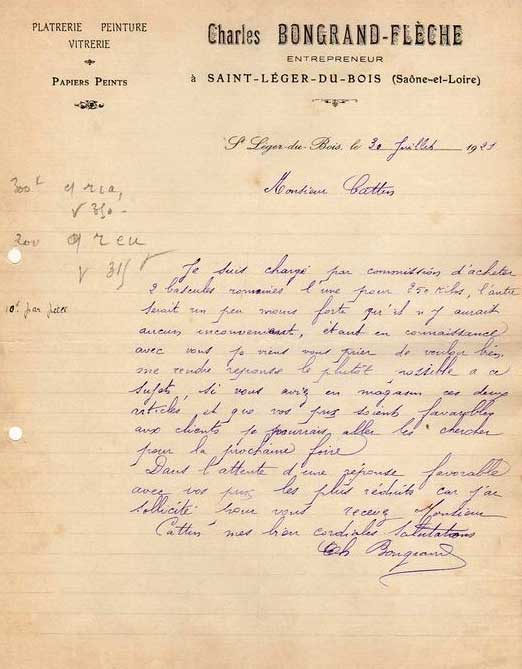 PLATRERIE PEINTURE
VITRERIE
PAPIERS PEINTS
Charles BONGRAND-FLÈCHE
ENTREPRENEUR
à SAINT-LÉGER-DU-BOIS (Saône-et-Loire)
St Léger-du-Bois, le 30 Juillet 1921
Monsieur Cattin
300k
350
300
315
10f par
Je suis chargé par commission d'acheter
2 bascules romaines l'une pour 250 Kilos, l'autre
serait un peu moins forte qu'il n'y aurait
aucun inconvenient, etant en connaissance
avec vous je viens vous prier de vouloir bien
me rendre reponse le plutot possible a ce
sujets, si vous aviez en magasin ces deux
articles et que vos prix soient favorables
aux clients je pourrais aller les chercher
pour la prochaine foire
Dans l'attente d'une reponse favorable
avec vos prix les plus réduits car j'ai
sollicité pour vous recevez Monsieur
Cattin mes bien cordiales salutations
Ch Bongrand